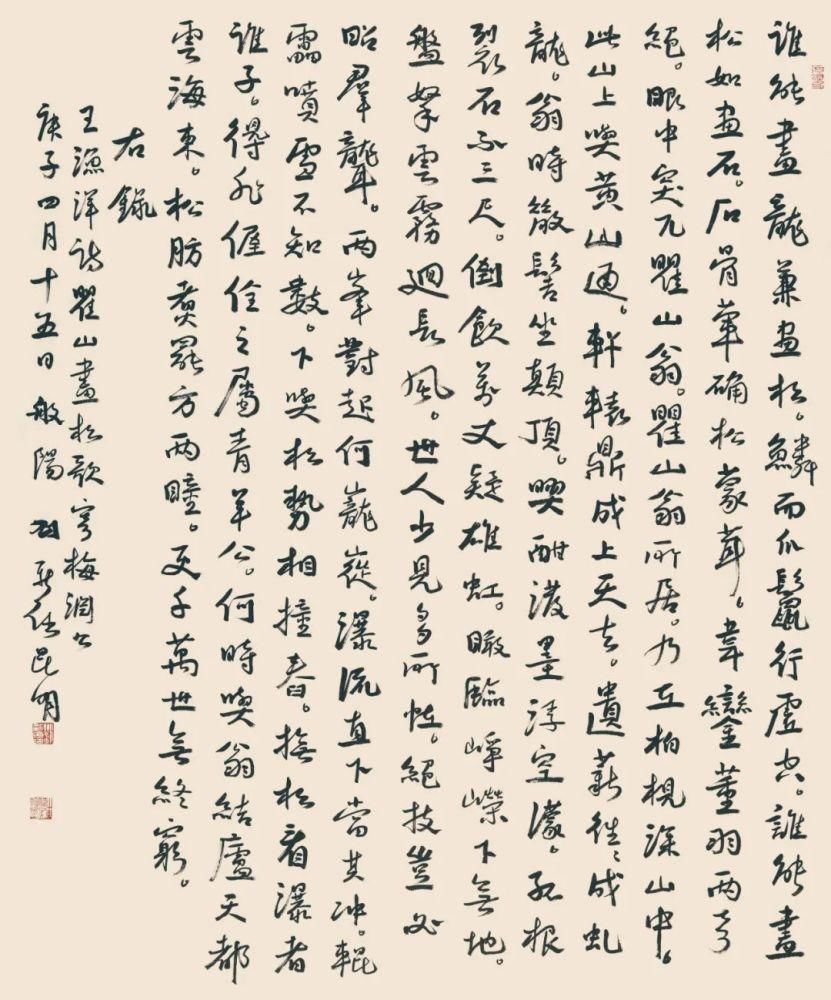 誰能畫龍兼畫松。鱗而爪鬣行虛空。誰能畫
松如畫石。石骨犖确松蒙茸。韋鑾董羽兩奇
絕。眼中突兀瞿山翁。瞿山翁所居。乃在柏梘深山中。
此山上與黃山通。軒轅鼎成上天去。遺薪往〻成虬
龍。翁時散髻坐顛頂。興酣潑墨浮空濛。孤根
裂石不三尺。倒飲萬丈疑雄虹。瞰臨崢嶸下無地。
盤拏雲霧迴長風。世人少見多所怪。絕技豈必
昭群聾。兩峯對起何巃嵸。瀑流直下當其沖。輥
雷噴雪不知數。下與松勢相撞舂。撫松看瀑者
誰子。得非偓佺之屬青羊公。何時與翁結廬天都
雲海東。松肪煮罷方兩瞳。更千萬世無終窮。
右錄
王漁洋詩瞿山畫松歌寄梅淵公
庚子四月十五日般陽昆明